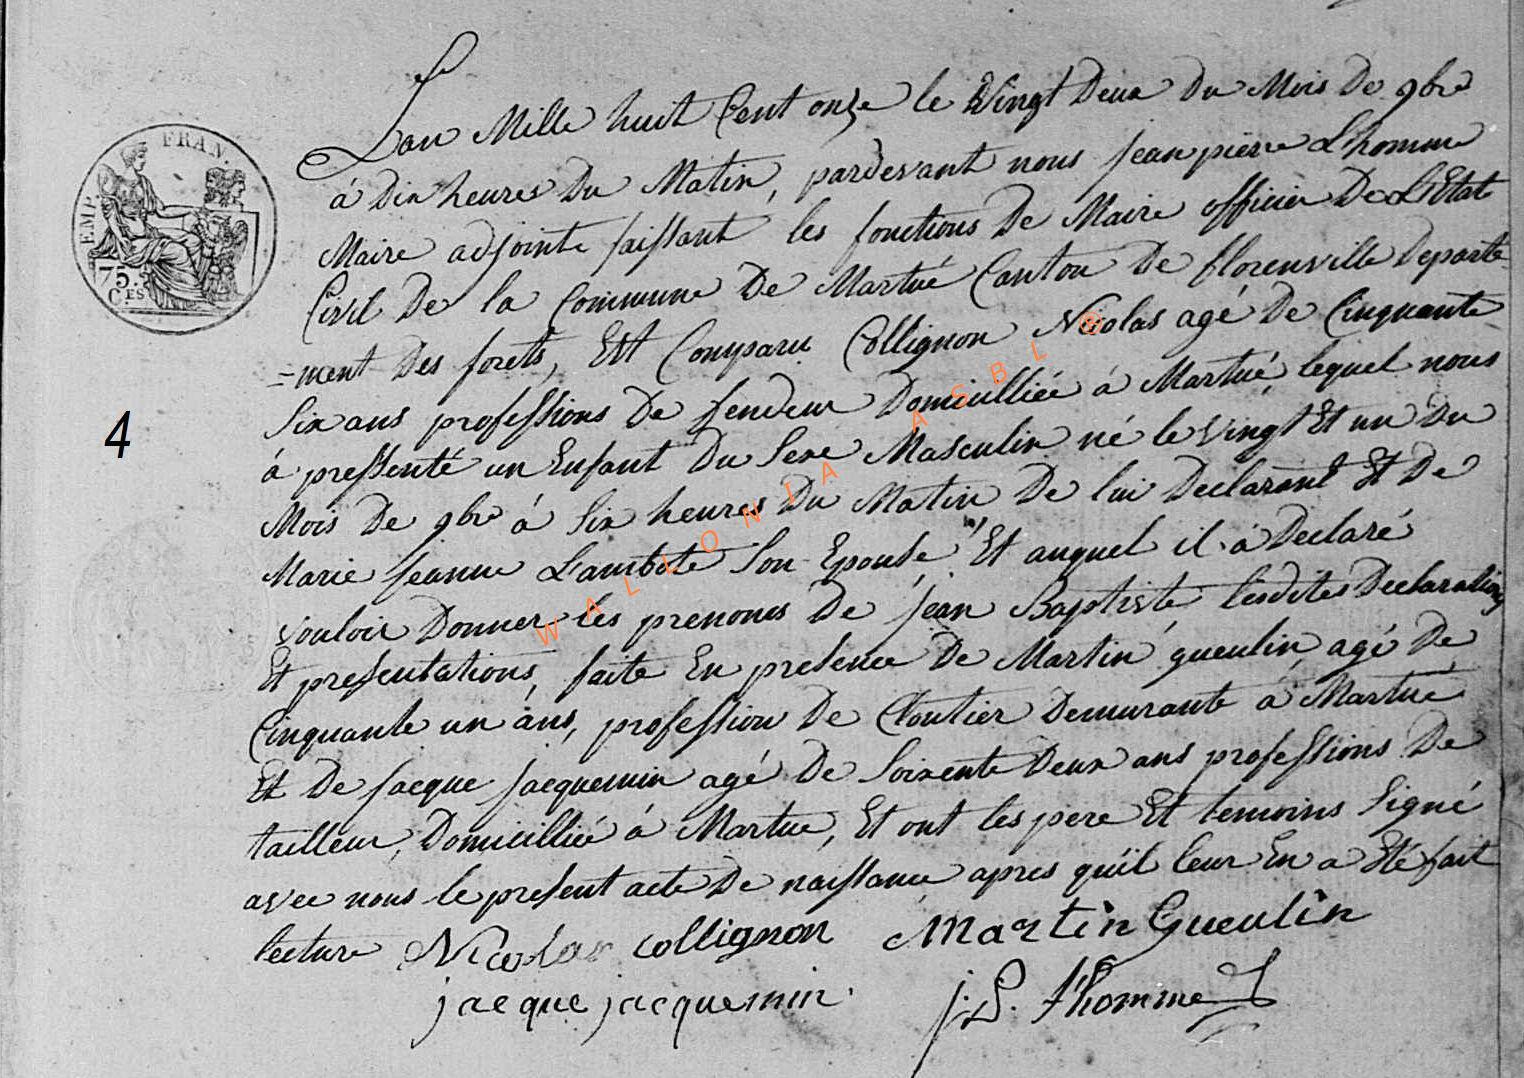 EMP. FRAN.
75.
C.ES
4
L'an Mille huit Cent onze le Vingt Deux Du Mois De 9bre
à Dix heures Du Matin, pardevant nous jean pierre Lhomme
Maire adjointe faissant les fonctions De Maire officier De L'Etat
Civil De la Commune De Martué Canton De florenville Departe
=ment Des forets, Est Comparu Collignon Nicolas agé De Cinquante
Six ans professions De fendeur Domicilliée à Martué, lequel nous
à pressenté un Enfant Du Sexe Masculin né le Vingt Et un Du
Mois De 9bre à Six heures Du Matin De lui Declarant Et De
Marie jeanne Lambote Son Epouse, Et auquel il à Declaré
vouloir Donner les prenoms De jean Baptiste, lesdites Declarations
Et presentations, faite En presence De Martin gueulin agé De
Cinquante un ans, profession De Cloutier Demurante à Martué
Et De jacque jacquemin agé De Soixente Deux ans professions De
tailleur, Domicilliée à Martue, Et ont les pere Et temoins Signé
avec nous le present acte De naissance apres quil leur En a Eté fait
lecture Nicolas collignon Martin Gueulin
jacque jacquemin. j. P. Lhomme
WALLONIA ASBL ®